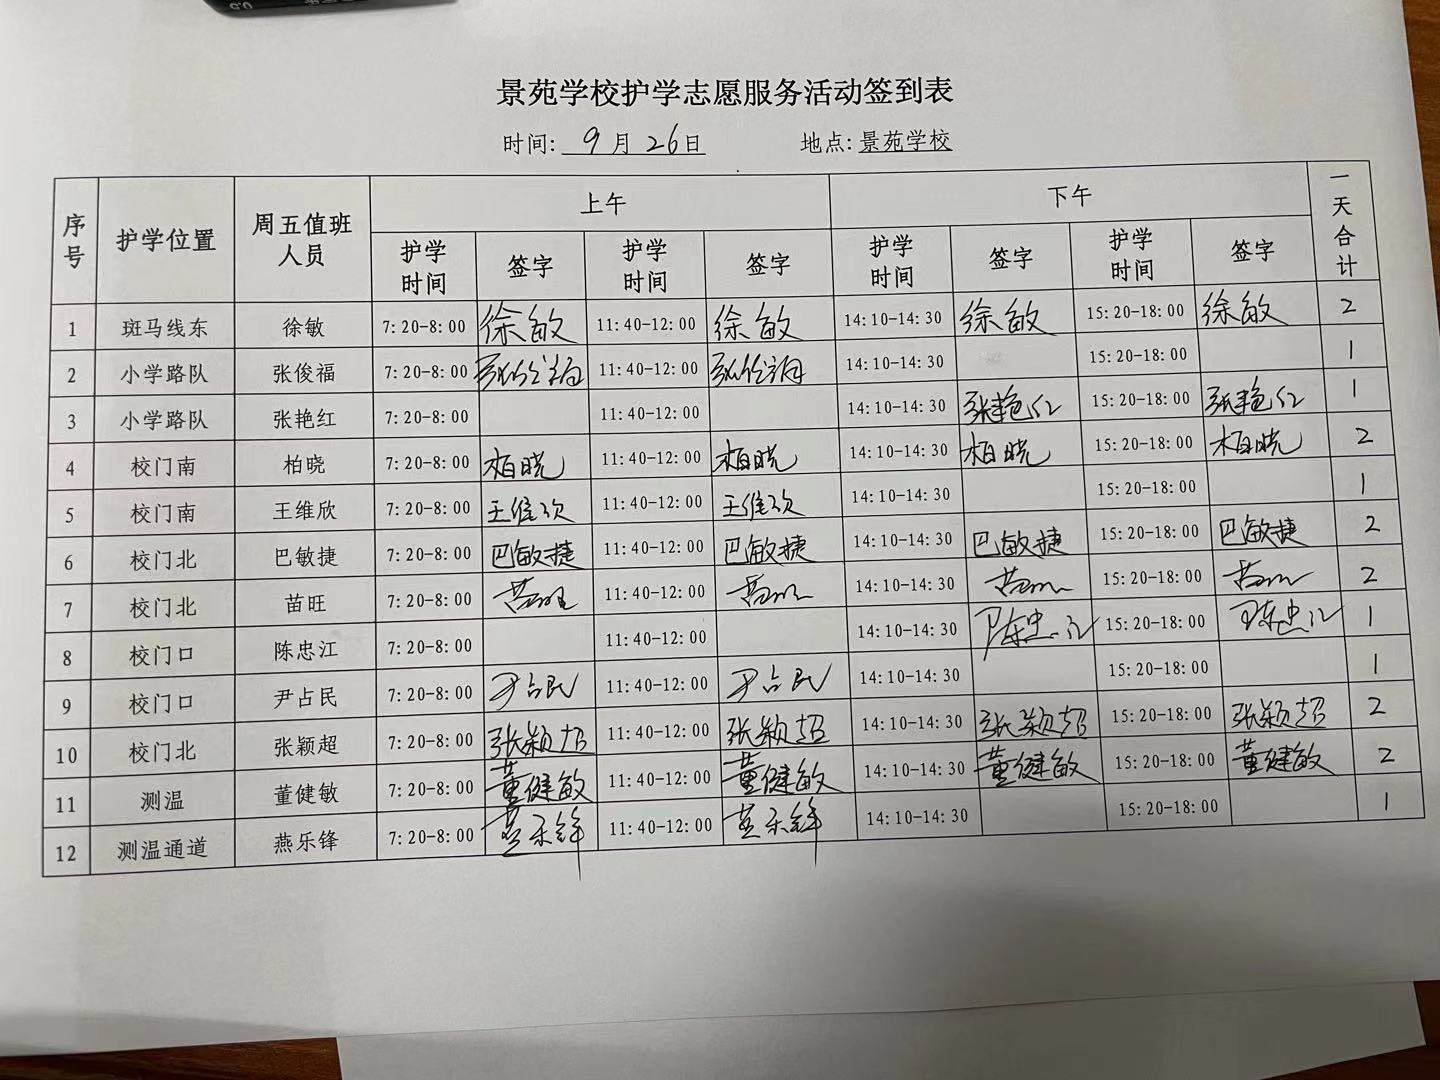 景苑学校护学志愿服务活动签到表
时间: 9月26日 地点: 景苑学校
序号 护学位置 周五值班人员 上午 下午 一天合计
护学时间 签字 护学时间 签字 护学时间 签字 护学时间 签字
1 斑马线东 徐敏 7:20-8:00 徐敏 11:40-12:00 徐敏 14:10-14:30 徐敏 15:20-18:00 徐敏 2
2 小学路队 张俊福 7:20-8:00 11:40-12:00 14:10-14:30 15:20-18:00 1
3 小学路队 张艳红 7:20-8:00 11:40-12:00 14:10-14:30 张艳红 15:20-18:00 张艳红 1
4 校门南 柏晓 7:20-8:00 柏晓 11:40-12:00 柏晓 14:10-14:30 柏晓 15:20-18:00 柏晓 2
5 校门南 王维欣 7:20-8:00 王维欣 11:40-12:00 王维欣 14:10-14:30 15:20-18:00 1
6 校门北 巴敏捷 7:20-8:00 巴敏捷 11:40-12:00 巴敏捷 14:10-14:30 巴敏捷 15:20-18:00 巴敏捷 2
7 校门北 苗旺 7:20-8:00 苗旺 11:40-12:00 苗旺 14:10-14:30 苗旺 15:20-18:00 苗旺 2
8 校门口 陈忠江 7:20-8:00 11:40-12:00 14:10-14:30 陈忠江 15:20-18:00 陈忠江 1
9 校门口 尹占民 7:20-8:00 尹占民 11:40-12:00 尹占民 14:10-14:30 15:20-18:00 1
10 校门北 张颖超 7:20-8:00 张颖超 11:40-12:00 张颖超 14:10-14:30 张颖超 15:20-18:00 张颖超 2
11 测温 董健敏 7:20-8:00 董健敏 11:40-12:00 董健敏 14:10-14:30 董健敏 15:20-18:00 董健敏 2
12 测温通道 燕乐锋 7:20-8:00 燕乐锋 11:40-12:00 燕乐锋 14:10-14:30 15:20-18:00 1